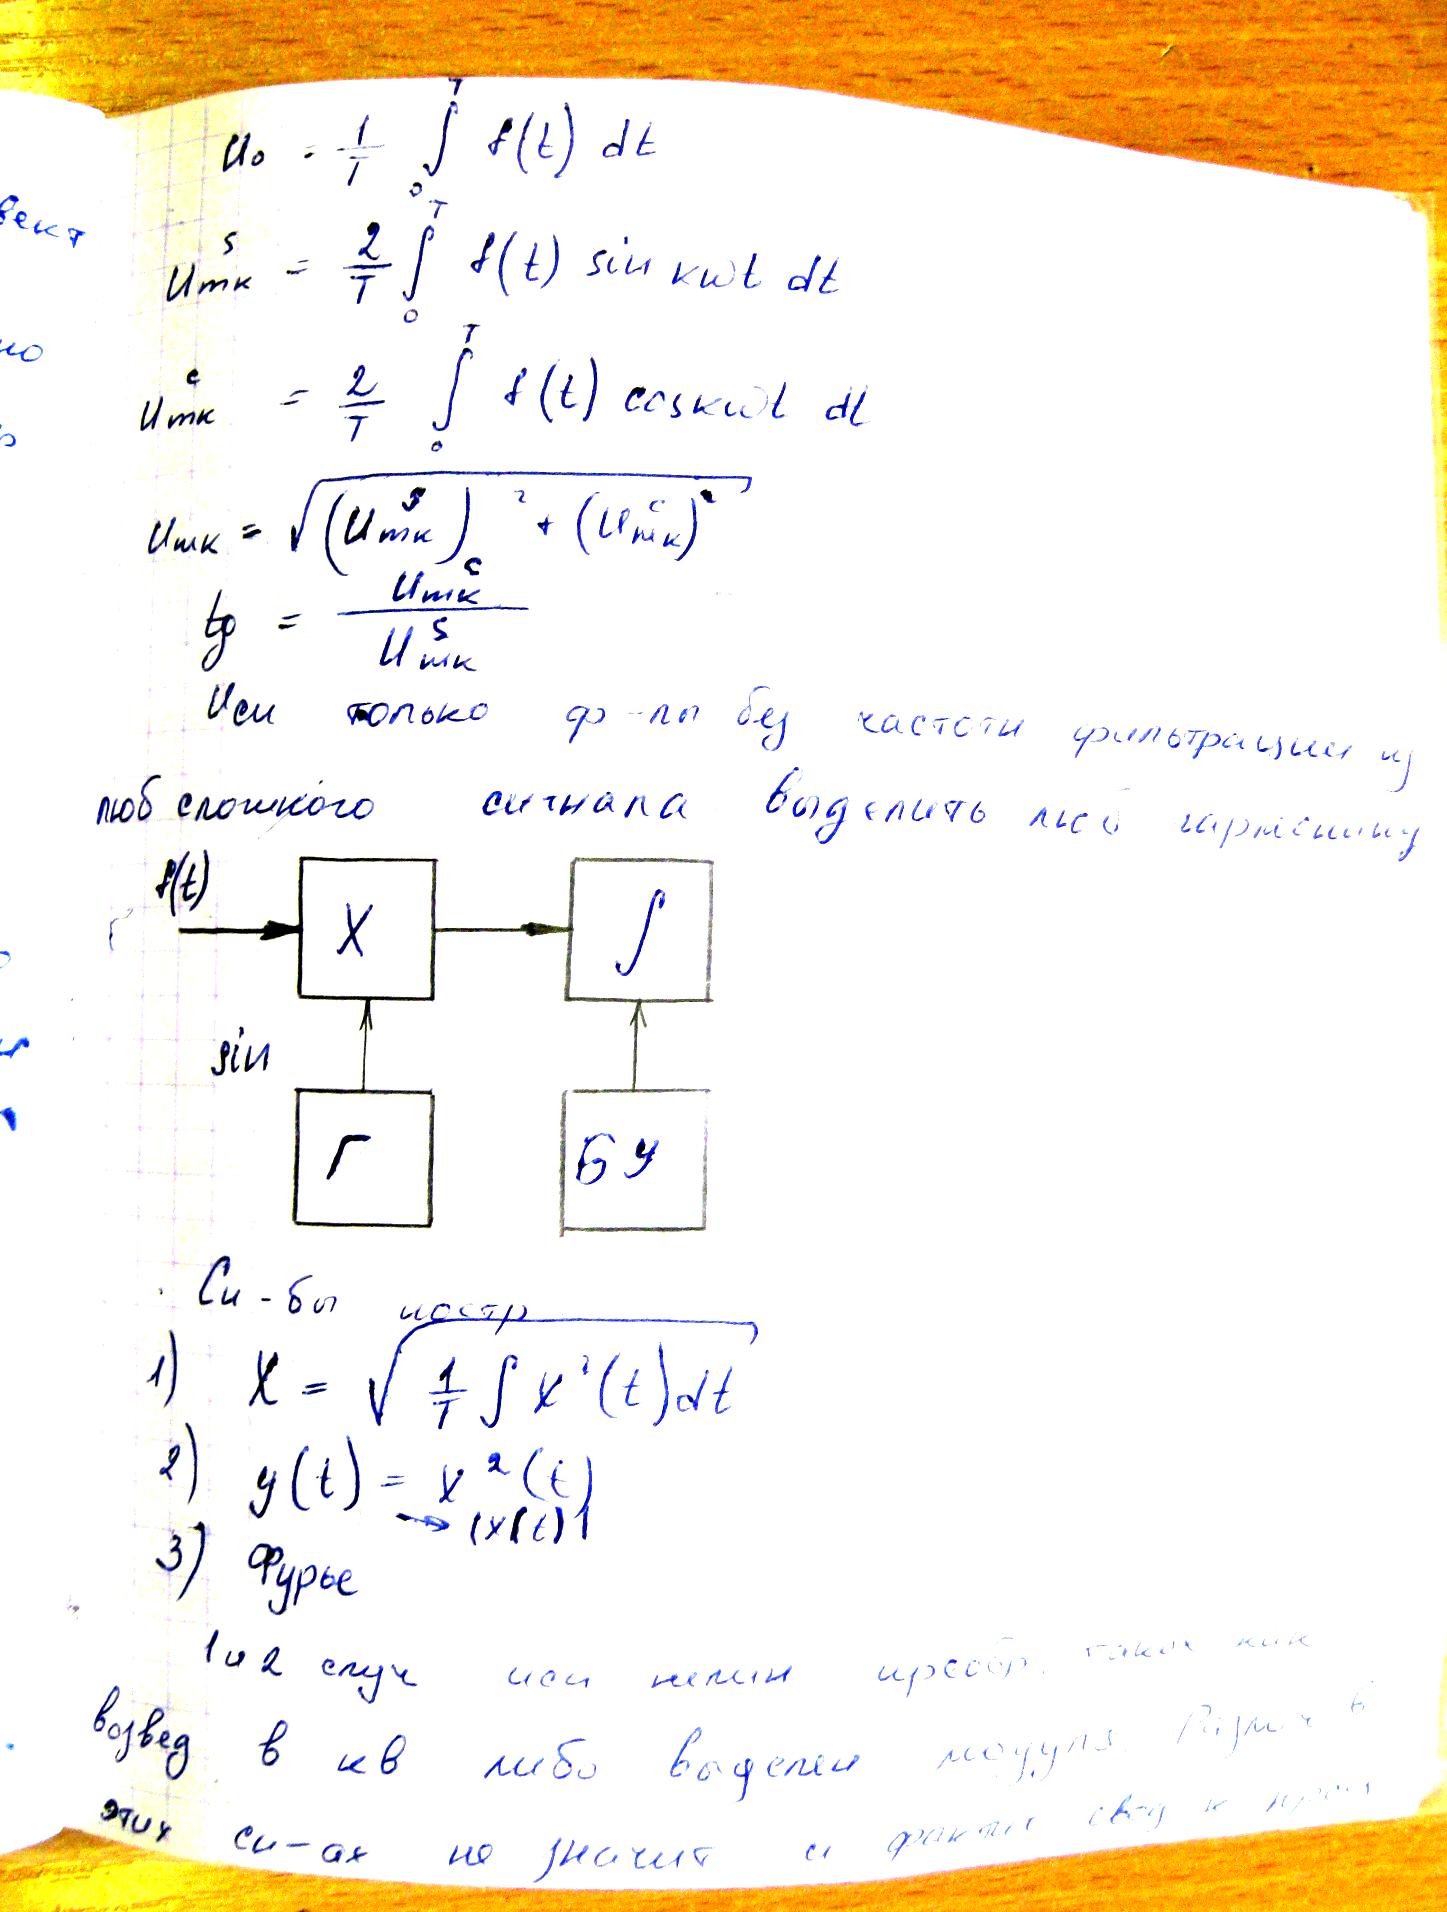 U₀ = 1/T ∫₀ᵀ f(t) dt
Uˢmк = 2/T ∫₀ᵀ f(t) sin кωt dt
Uᶜmк = 2/T ∫₀ᵀ f(t) cos кωt dt
Umк = √((Uˢmк)² + (Uᶜmк)²)
tg = Uᶜmк / Uˢmк
Исп только ф-лы без частотн фильтрации из
люб сложного сигнала выделить люб гармонику
f(t)
X ∫
sin
Г БУ
Сп-бы постр
1) X = √(1/T ∫ x²(t)dt)
2) y(t) = x²(t)
→ |x(t)|
3) Фурье
1 и 2 случ исп нелин преобр. таких как
возвед в кв либо выделен модуля. Различ в
этих сп-ах не значит и фактич свод к
вект
но